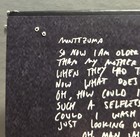 MONTEZUMA
SO NOW I AM OLDER
THAN MY MOTHER
WHEN THEY HAD T
NOW WHAT DOES
OH, HOW COULD I
SUCH A SELFLES
COULD I WAK
JUST LOOKING OU
OH MAN